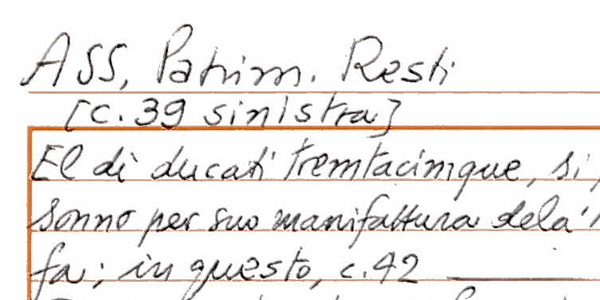 ASS, Patrim. Resti
[c. 39 sinistra]
El dì ducati tremtacimque, si,
sonno per suo manifattura dela'
fa; in questo, c. 42